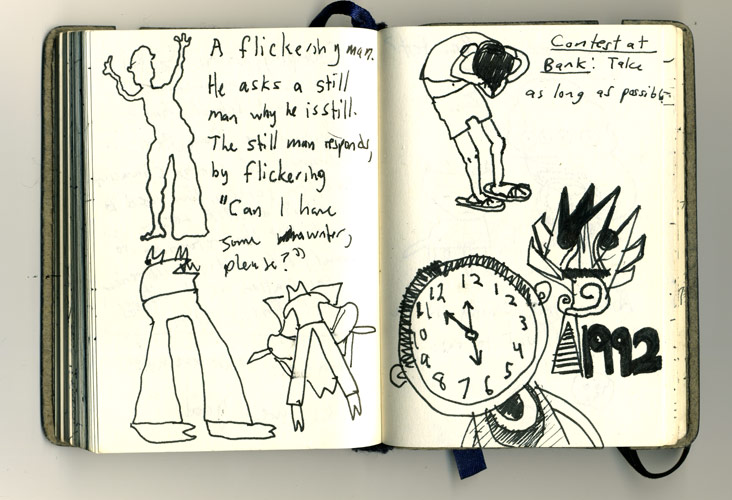 A flickering man.
He asks a still
man why he is still.
The still man responds,
by flickering
"Can I have
some water,
please?"
Contest at
Bank: Take
as long as possible
12 12 1 2 3 4 5 6 7 8 9 10 11
1992